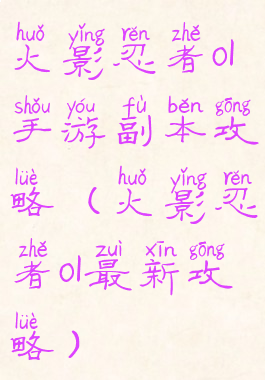 huǒ yǐng rěn zhě
火影忍者ol
shǒu yóu fù běn gōng
手游副本攻
lüè huǒ yǐng rěn
略(火影忍
zhě zuì xīn gōng
者ol最新攻
lüè
略)